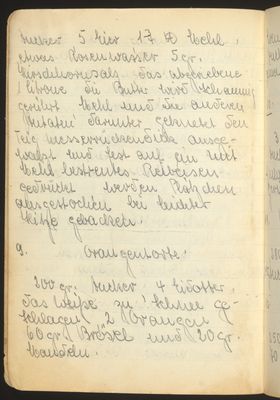 Zucker 5 Eier 1 ½ ℔ Mehl,
etwas Rosenwasser 5 gr.
Hirschhornsalz das abgeriebene
Citrone die Butter wird schaumig
gerührt Mehl und die anderen
Zutaten darunter geknetet den
Teig messerrückendick ausge-
walgt und fest auf ein mit
Mehl bestreutes Reibeisen
gedrückt werden Plätzchen
ausgestochen bei leichter
Hitze gebacken.
9. Orangentorte.
200 gr. Zucker 4 Eidotter,
das Weiße zu Schnee ge-
schlagen 2 Orangen
60 gr Brösel und 20 gr.
Mandeln.